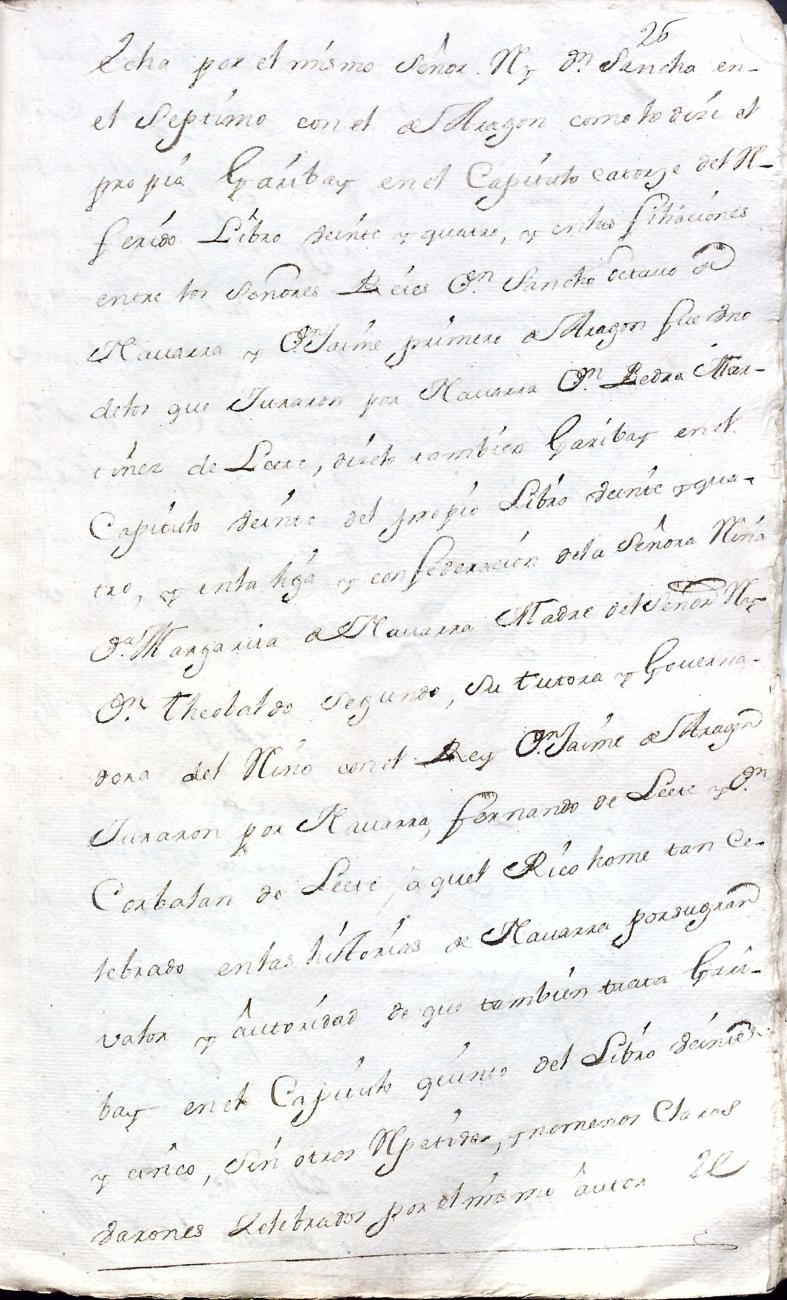 26
Zcha por el mismo Señor Rey Dn Sancho en-
el Septimo con el de Aragon como lo dize el
propio Garibay en el Capitulo catorze del Re-
ferido Libro veinte y quatro, y en las filiaciones
entre los Señores Reies Dn Sancho octavo de
Navarra y Dn Jaime primero de Aragon fue vno
delos que Juraron por Navarra Dn Pedro Mar-
tinez de Leete, dicelo tambien Garibay en el
Capitulo veinte del propio Libro veinte y qua-
tro, y en la liga y confederacion dela Señora Reina
Da Margarita de Navarra Madre del Señor Rey
Dn Theobaldo Segundo, su tutora y Governa-
dora del Reino con el Rey Dn Jaime de Aragon
Juraron por Navarra, fernando de Leete y Dn
Corbalan de Leete, aquel Rico home tan ce-
lebrado en las historias de Navarra por su gran
valor y autoridad de que tambien trata Gari-
bay en el Capitulo quinto del Libro veinte
y cinco, sin otros Repetidos, y no menos Claros
varones Zelebrados por el mismo autor